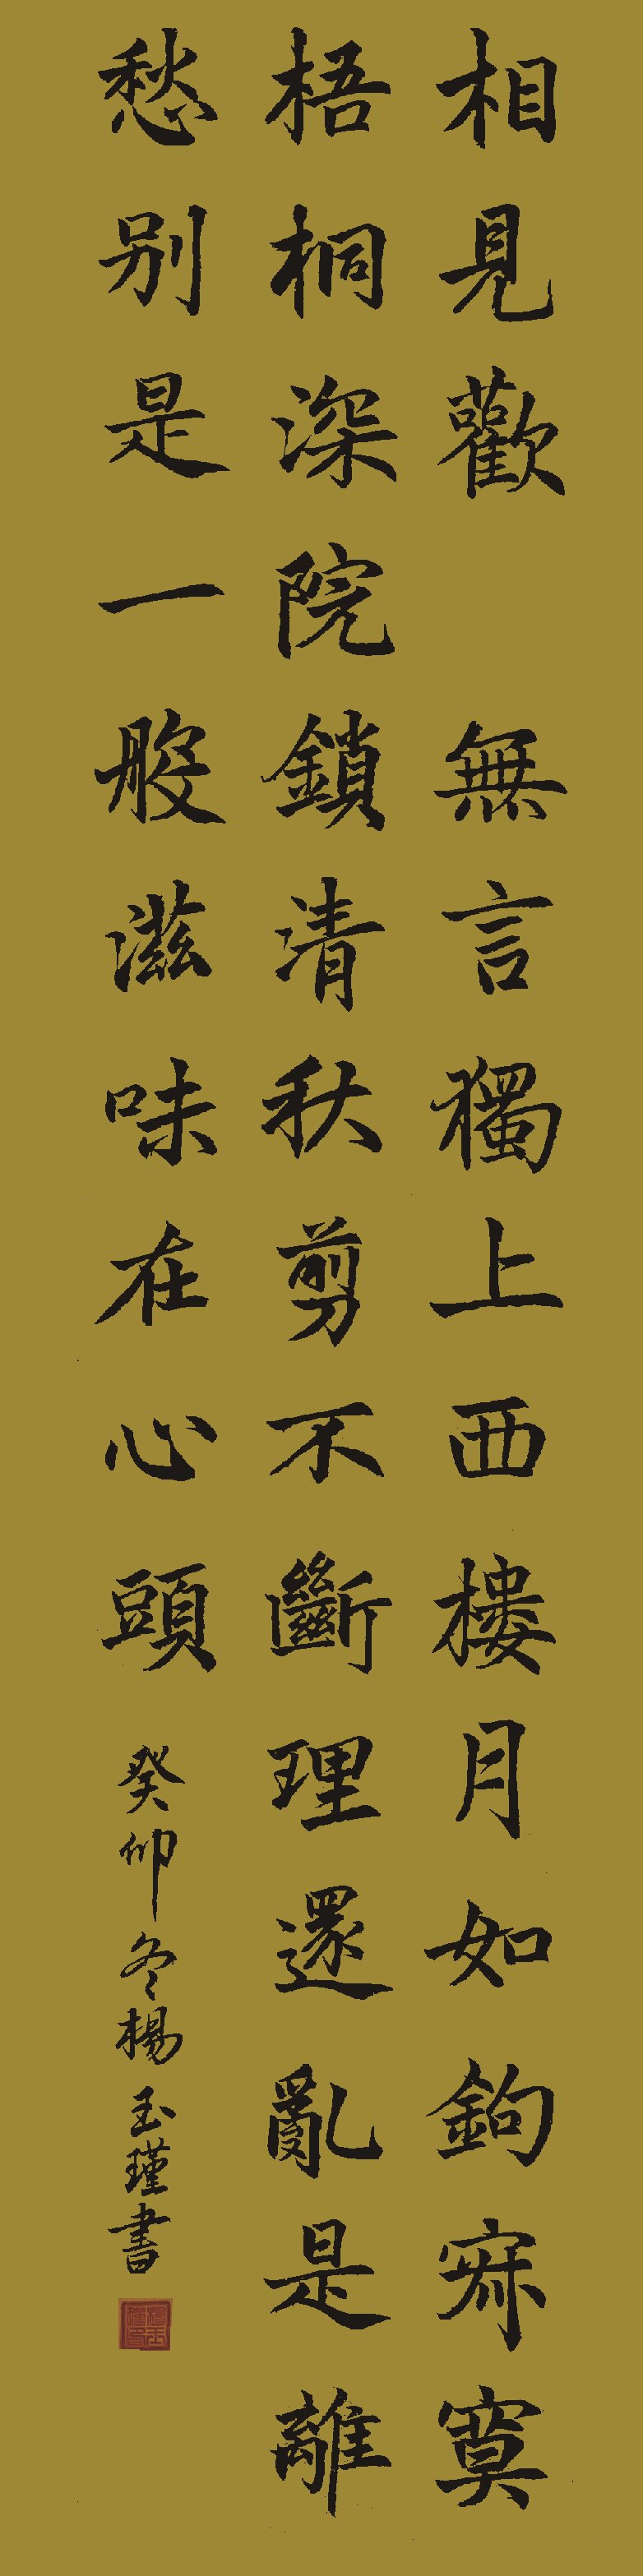 相見歡 無言獨上西樓月如鉤寂寞
梧桐深院鎖清秋剪不斷理還亂是離
愁別是一般滋味在心頭
癸卯冬楊玉瑾書